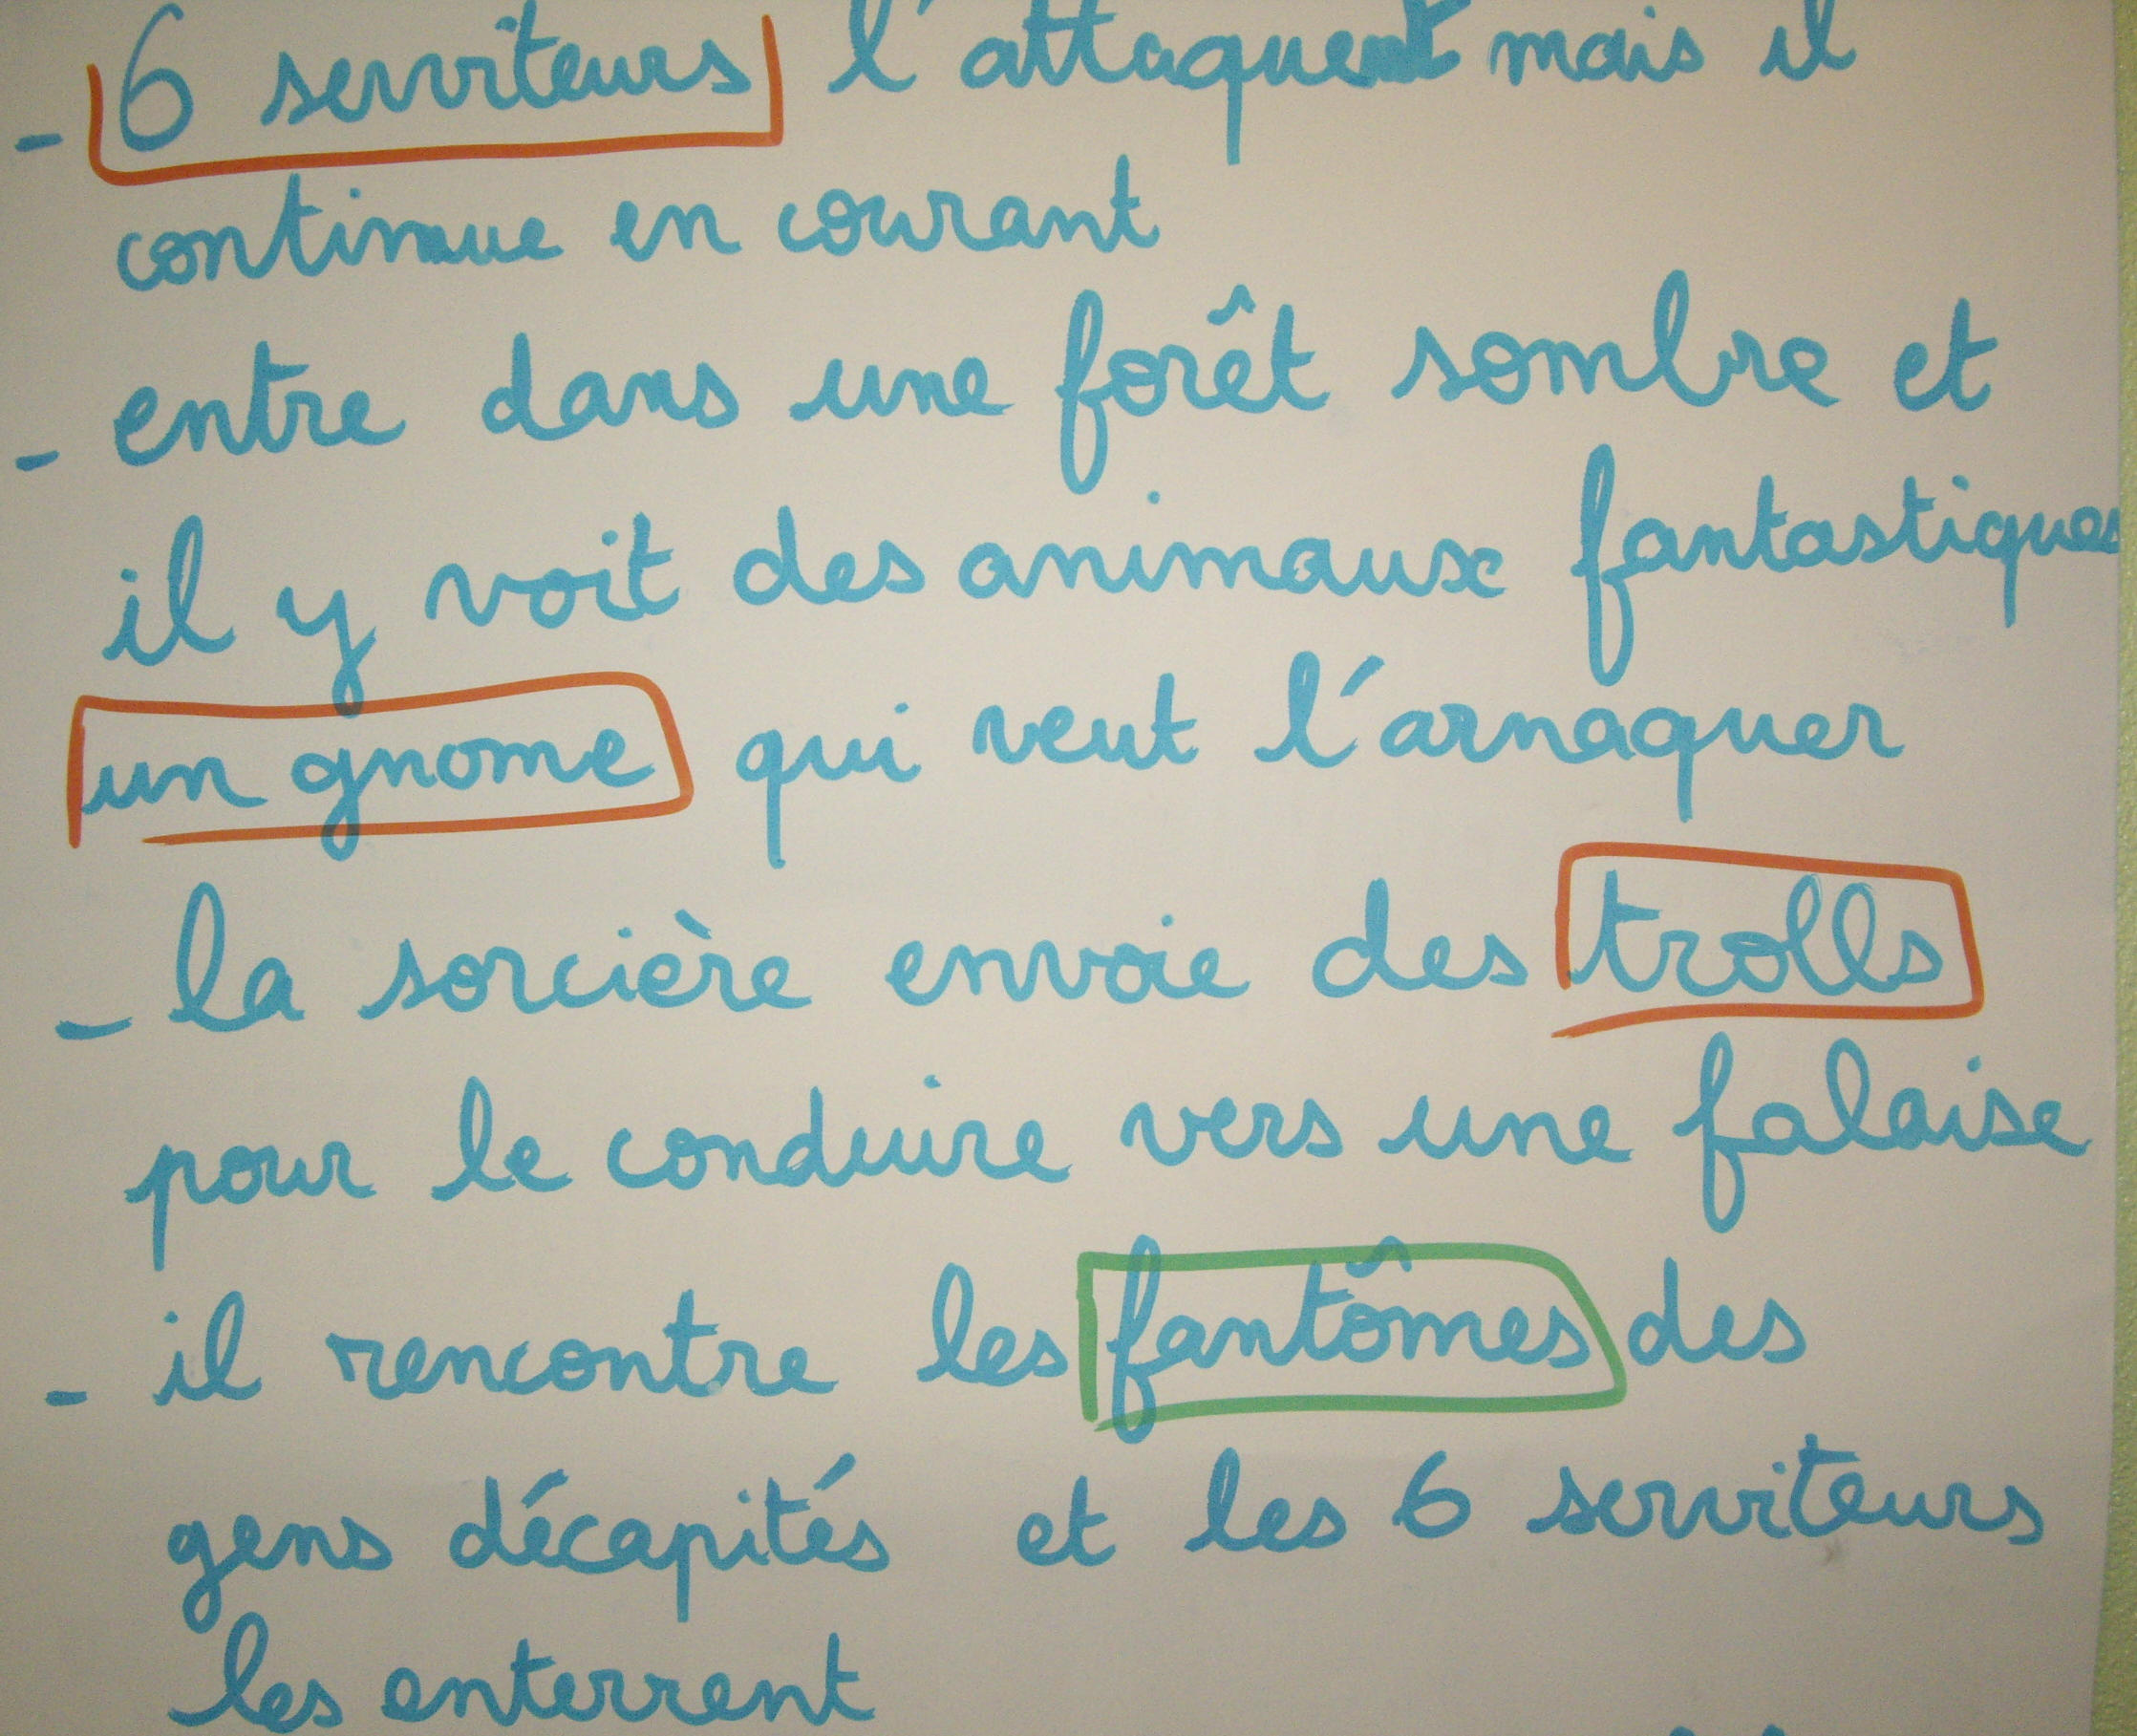 - 6 serviteurs l'attaquent mais il
continue en courant
- entre dans une forêt sombre et
il y voit des animaux fantastiques
un gnome qui veut l'arnaquer
- la sorcière envoie des trolls
pour le conduire vers une falaise
- il rencontre les fantômes des
gens décapités et les 6 serviteurs
les enterrent